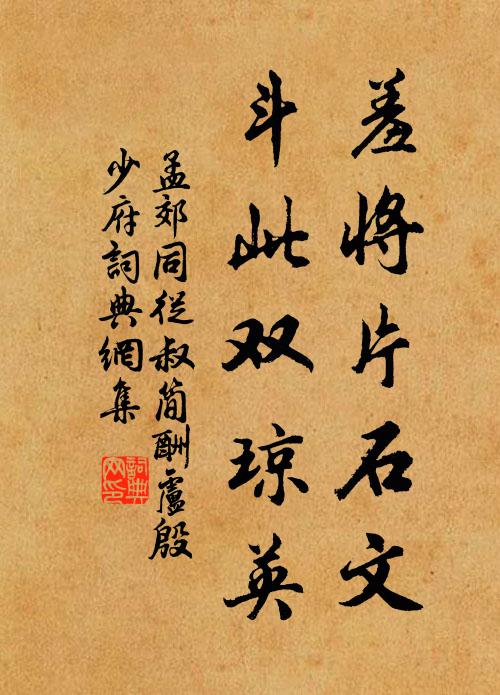 羞将片石文
斗此双琼英
孟郊同從叔简酬盧殷
少府詞典網集
詞典
网印